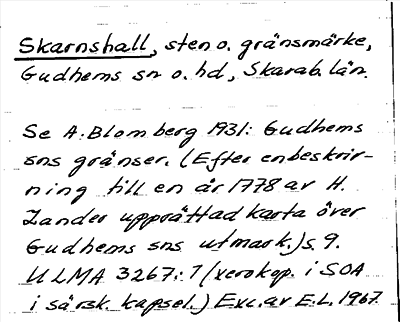 Skarnshall, sten o. gränsmärke,
Gudhems sn o. hd, Skarab. län.
Se A. Blomberg 1931: Gudhems
sns gränser. (Efter en beskriv-
ning till en år 1778 av H.
Zander upprättad karta över
Gudhems sns utmark.) s. 9.
ULMA 3267:1 (xerokop. i SOA
i särsk. kapsel.) Exc. av E.L. 1967.